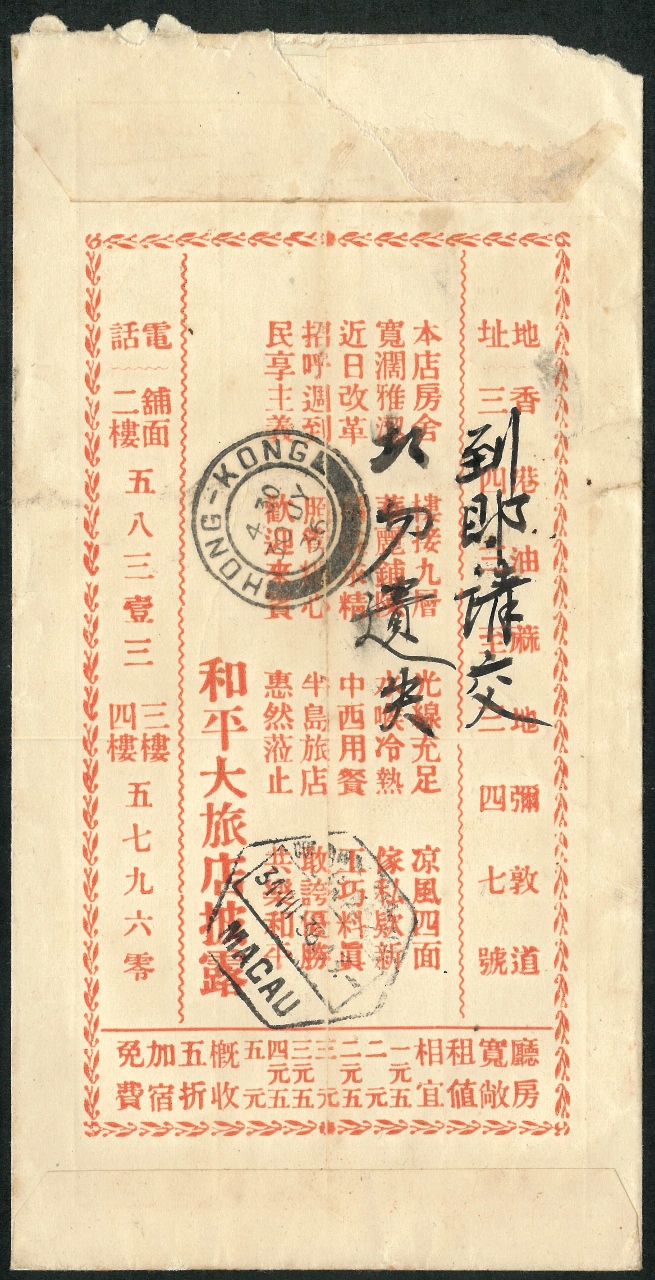 地址
香港油麻地彌敦道
三四三至三四七號
本店房舍 樓接九層 光線充足 凉風四面
寬濶雅潔 華麗鋪陳 水喉冷熱 傢私欵新
近日改革 精 中西用餐 工巧料真
招呼週到 心 半島旅店 敢誇優勝
民享主義 歡迎來賓 惠然蒞止 共樂和平
和平大旅店披露
電話 舖面二樓 五八三壹三 三樓四樓 五七九六零
廳房
寬敞
租值
相宜
一元五
二元
二元五
三元
三元五
四元五
五元
概收
五折
加宿
免費
到即請交
勿遺失
HONG-KONG
4.30
30 JY
36
MACAU